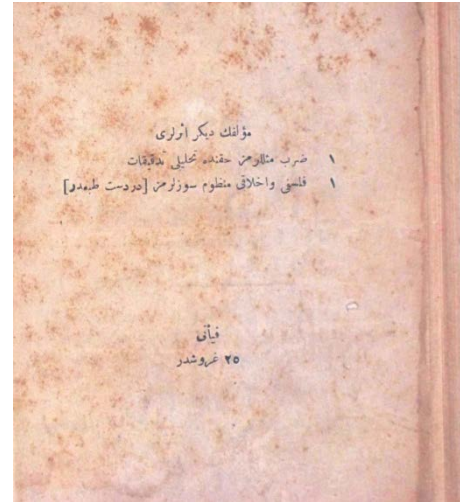 مؤلفك ديكر اثرلرى
١ ضرب مثللرمز حقنده تحليلى تدقيقات
١ فلسفى واخلاقى منظوم سوزلرمز [دردست طبعدر]
فيأتى
٢٥ غروشدر